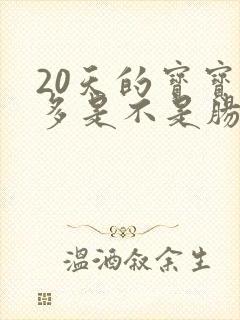 20天的宝宝
多是不是肠
温酒叙余生